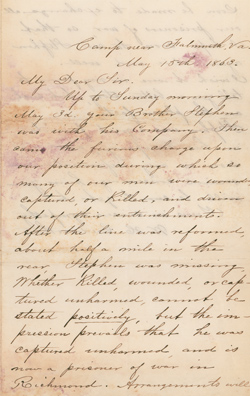 Camp near Falmouth, Va.
May 15th 1863.
My Dear Sir.
Up to Sunday morning
May 3d your Brother Stephen
was with his Company. Then
came the furious charge upon
our position during which so
many of our men were wound-
captured, or Killed, and driven
out of their entrenchments.
After the line was reformed
about half a mile in the
rear Stephen was missing.
Whether Killed, wounded, or cap-
tured unharmed, cannot be
stated positively, but the im-
pression prevails that he was
captured unharmed, and is
now a prisoner of war in
Richmond. Arrangements will